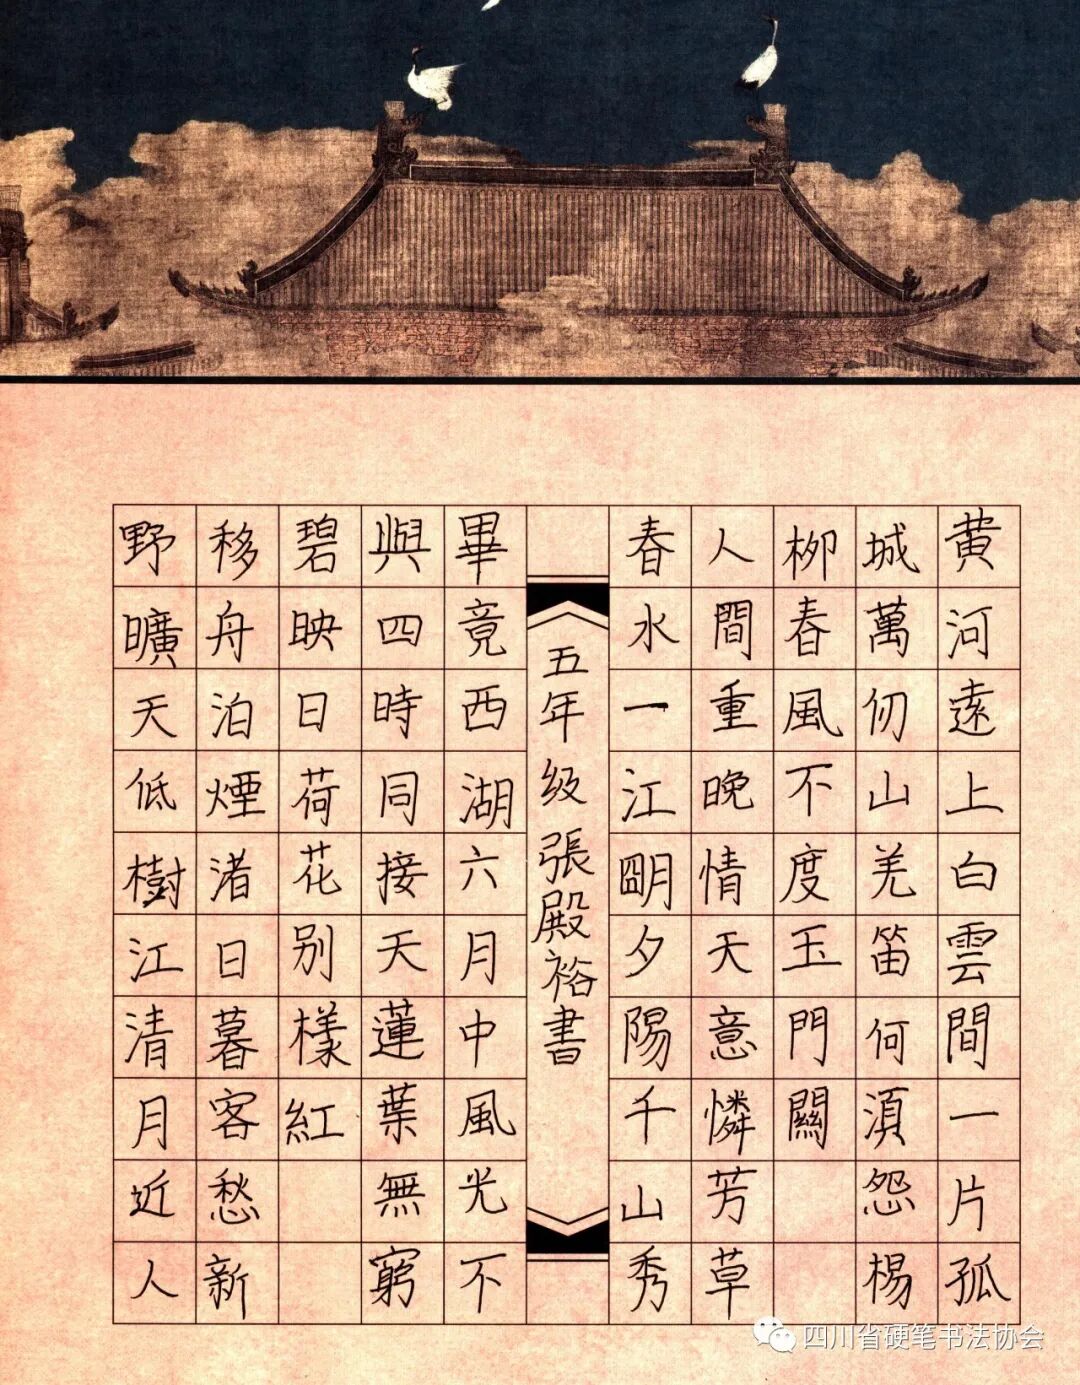 黄河遠上白雲間一片孤
城萬仞山羌笛何湏怨楊
柳春風不度玉門關
人間重晚情天意憐芳草
春水一江朙夕陽千山秀
五年级張殿裕書
畢竟西湖六月中風光不
與四時同接天蓮葉無窮
碧映日荷花别樣紅
移舟泊煙渚日暮客愁新
野曠天低樹江清月近人
四川省硬笔书法协会